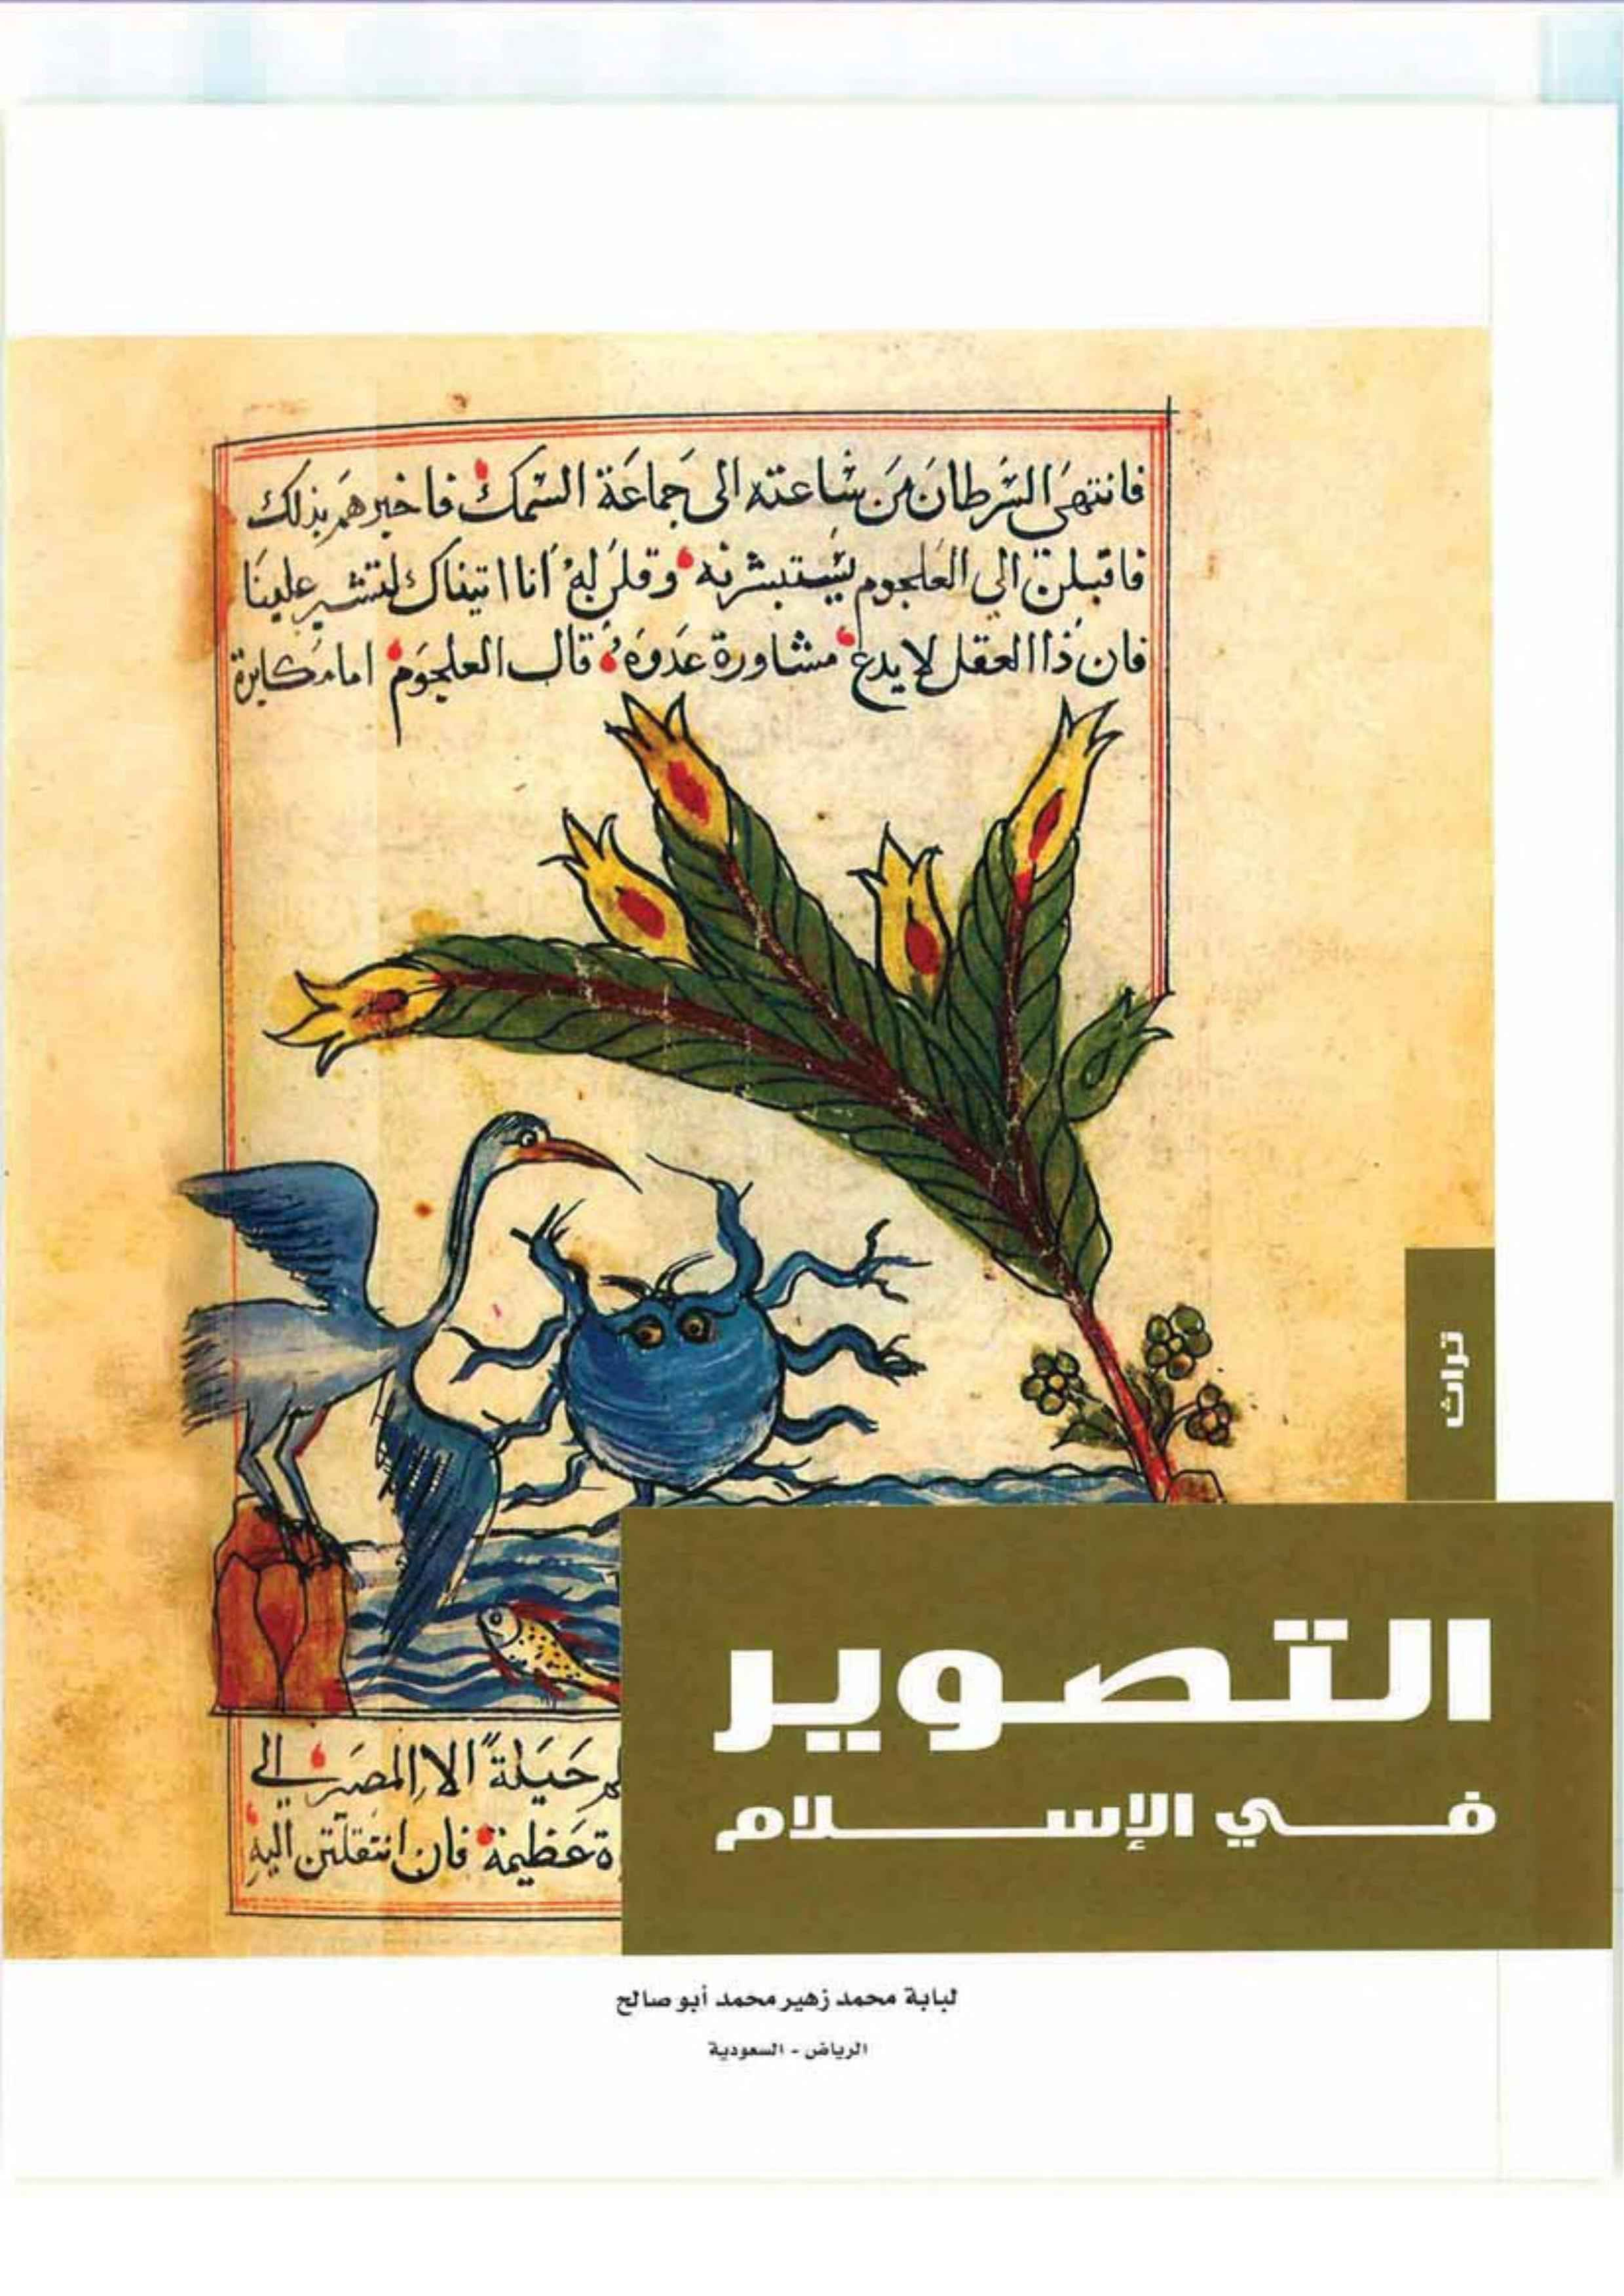 فانتهى السرطان من ساعته الى جماعة السمك فاخبرهم بذلك
فاقبلن الى العلجوم يستبشرنه وقلن له انا اتيناك لتشير علينا
فان ذا العقل لا يدع مشاورة عدوه قال العلجوم اما مكابرة
تراث
التصوير
في الإسلام
حيلة الا المصير الى
عظيمة فان انتقلتن اليه
لبابة محمد زهير محمد أبو صالح
الرياض - السعودية